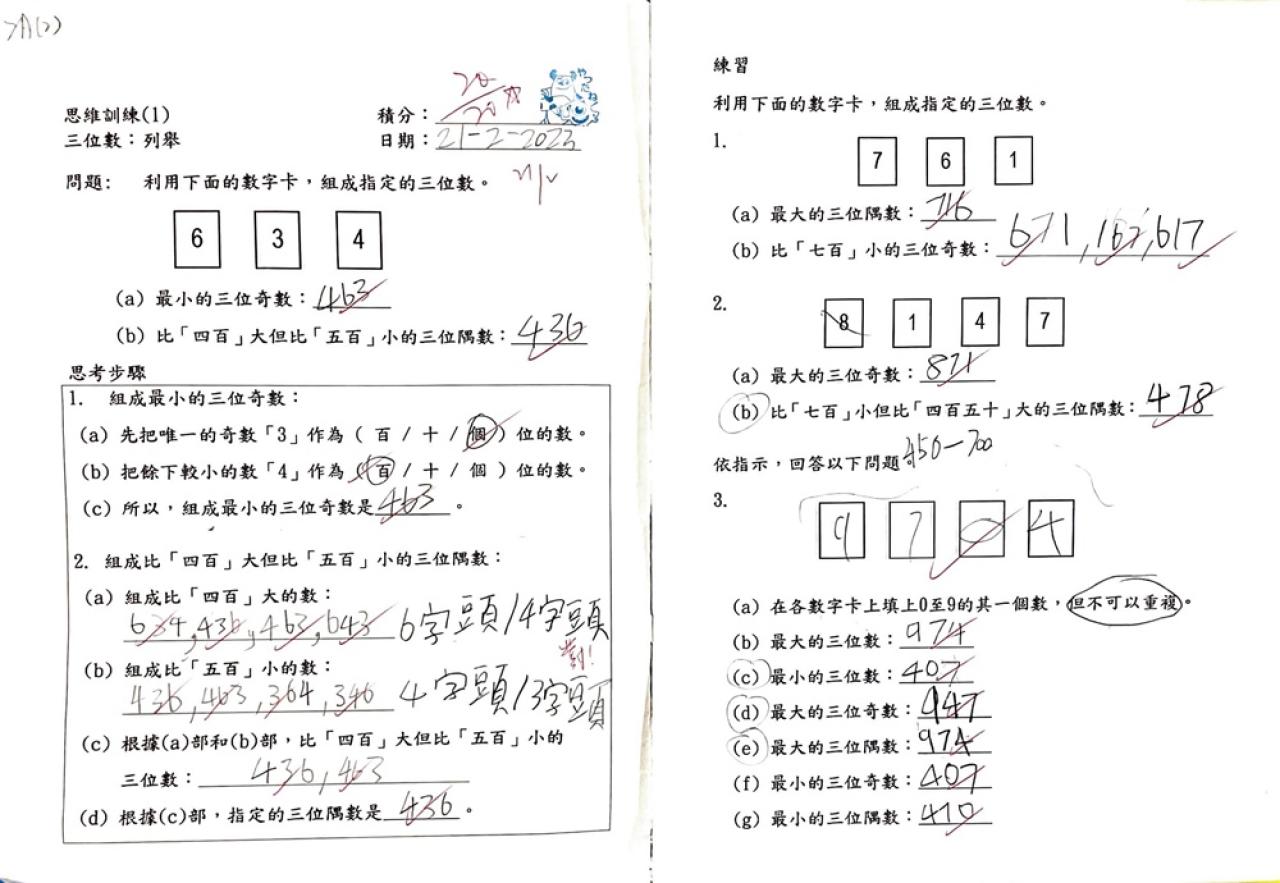 思維訓練(1)
積分：20/20
三位數：列舉
日期：21-2-2023
問題：利用下面的數字卡，組成指定的三位數。
6 3 4
(a) 最小的三位奇數：463
(b) 比「四百」大但比「五百」小的三位隅數：436
思考步驟
1. 組成最小的三位奇數：
(a) 先把唯一的奇數「3」作為（ 百 / 十 / 個 ）位的數。
(b) 把餘下較小的數「4」作為（ 百 / 十 / 個 ）位的數。
(c) 所以，組成最小的三位奇數是463。
2. 組成比「四百」大但比「五百」小的三位隅數：
(a) 組成比「四百」大的數：
634,436,463,643 6字頭/4字頭
(b) 組成比「五百」小的數：
對!
436,463,364,346 4字頭/3字頭
(c) 根據(a)部和(b)部，比「四百」大但比「五百」小的
三位數：436,463
(d) 根據(c)部，指定的三位隅數是436。
練習
利用下面的數字卡，組成指定的三位數。
1.
7 6 1
(a) 最大的三位隅數：716
(b) 比「七百」小的三位奇數：671,167,617
2.
8 1 4 7
(a) 最大的三位奇數：871
(b) 比「七百」小但比「四百五十」大的三位隅數：478
依指示，回答以下問題 450-700
3.
9 7 0 4
(a) 在各數字卡上填上0至9的其一個數，但不可以重複。
(b) 最大的三位數：974
(c) 最小的三位數：407
(d) 最大的三位奇數：947
(e) 最大的三位隅數：974
(f) 最小的三位奇數：407
(g) 最小的三位隅數：470